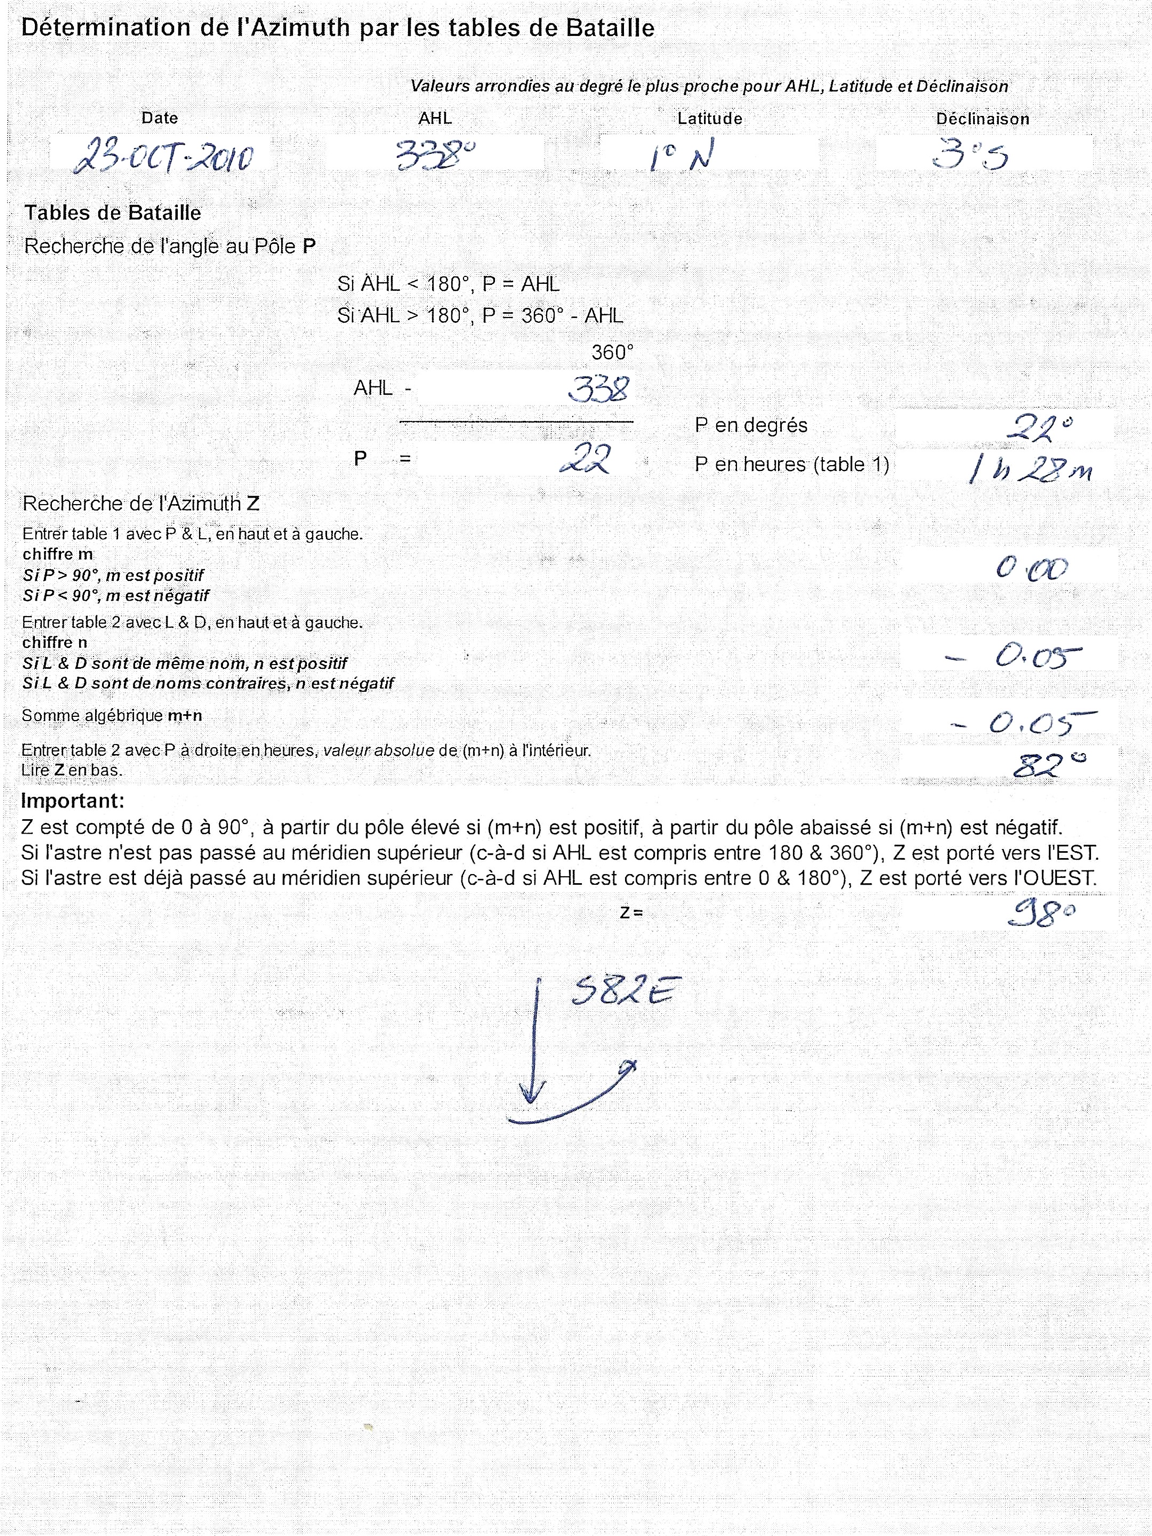 Détermination de l'Azimuth par les tables de Bataille
Valeurs arrondies au degré le plus proche pour AHL, Latitude et Déclinaison
Date AHL Latitude Déclinaison
23-OCT-2010 338° 1° N 3°S
Tables de Bataille
Recherche de l'angle au Pôle P
Si AHL < 180°, P = AHL
Si AHL > 180°, P = 360° - AHL
360°
AHL - 338
P en degrés 22°
P = 22 P en heures (table 1) 1 h 28 m
Recherche de l'Azimuth Z
Entrer table 1 avec P & L, en haut et à gauche.
chiffre m 0.00
Si P > 90°, m est positif
Si P < 90°, m est négatif
Entrer table 2 avec L & D, en haut et à gauche.
chiffre n - 0.05
Si L & D sont de même nom, n est positif
Si L & D sont de noms contraires, n est négatif
Somme algébrique m+n - 0.05
Entrer table 2 avec P à droite en heures, valeur absolue de (m+n) à l'intérieur.
Lire Z en bas. 82°
Important:
Z est compté de 0 à 90°, à partir du pôle élevé si (m+n) est positif, à partir du pôle abaissé si (m+n) est négatif.
Si l'astre n'est pas passé au méridien supérieur (c-à-d si AHL est compris entre 180 & 360°), Z est porté vers l'EST.
Si l'astre est déjà passé au méridien supérieur (c-à-d si AHL est compris entre 0 & 180°), Z est porté vers l'OUEST.
Z= 98°
S82E